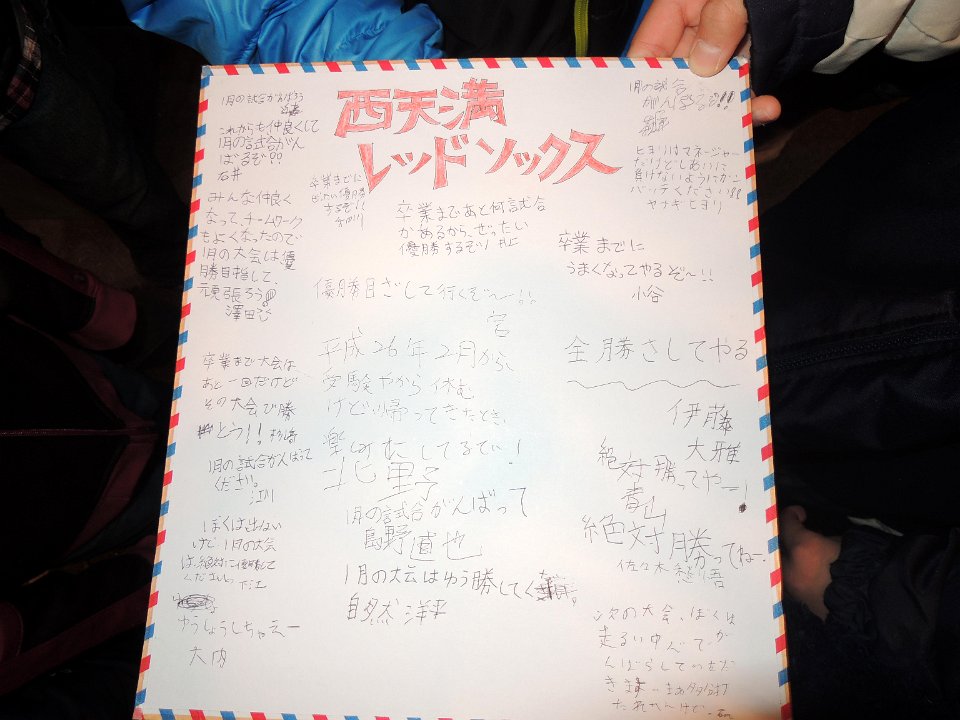 西天満
レッドソックス
1月の試合がんばろう
これからも仲良くして
1月の試合がん
ばるぞ!!
石井
みんな仲良く
なって、チームワーク
もよくなったので
1月の大会は優
勝目指して、
頑張ろう
澤田
卒業までに
ぜったい優勝
するぞ!!
卒業まであと何試合
かあるから、ぜったい
優勝するぞ!
井上
1月の試合
がんばるぞ!!
ヒヨリはマネージャー
だけどしあいに
負けないようにガン
バッテください!!
ヤナギヒヨリ
卒業までに
うまくなってやるぞ〜!!
小谷
優勝目ざして行くぞ〜!!
宮
平成26年2月から、
受験やから休む
けど、帰ってきたとき、
楽しみにしてるでい!
北野
全勝さしてやる
伊藤
大雅
卒業まで大会は
あと一回だけど
その大会で勝
とう!!
1月の試合がんばって
ください。
江川
絶対勝ってやー!
青山
1月の試合がんばって
島野直也
絶対勝ってねー。
佐々木
ぼくは出ない
けど1月の大会
は絶対に優勝して
ください。
1月の大会はゆう勝してく
自然洋平
ゆうしょうしちゃえー
大内
次の大会、ぼくは